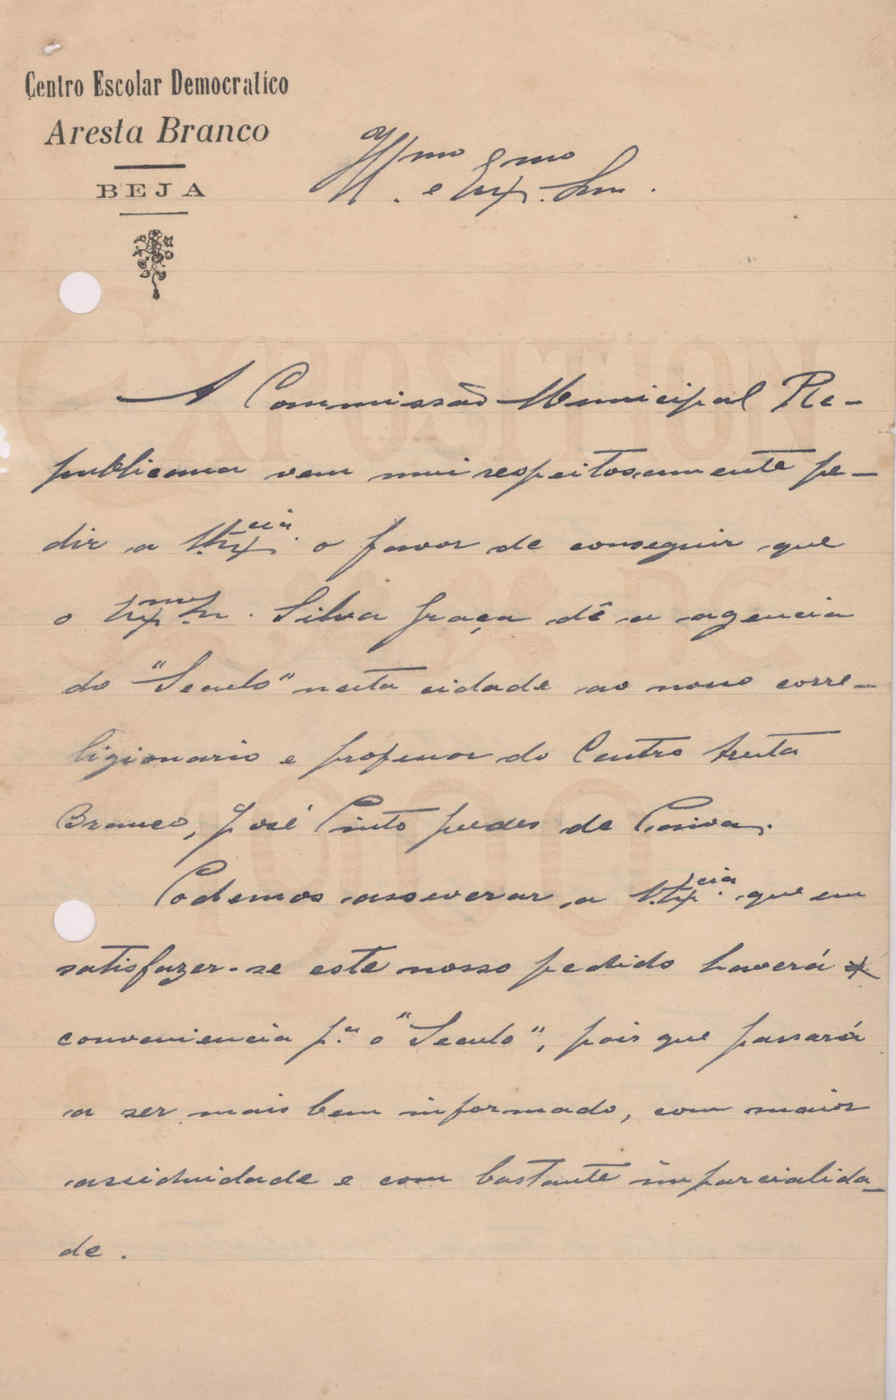 Centro Escolar Democratico
Aresta Branco
BEJA
Ill.mo e Ex.mo Snr.
A Commissão Municipal Re-
publicana vem mui respeitosamente pe-
dir a V. Ex.cia o favor de conseguir que
o Ex.mo Sr. Silva Graça dê a agencia
do "Seculo" nesta cidade ao nosso corre-
ligionario e professor do Centro Aresta
Branco, José Pinto de Paiva.
Podemos asseverar a V. Ex.cia que em
satisfazer-se este nosso pedido haverá
conveniencia p.a o "Seculo", pois que passará
a ser mais bem informado, com maior
assiduidade e com bastante imparcialida-
de.
EXPOZITION
DE
1900